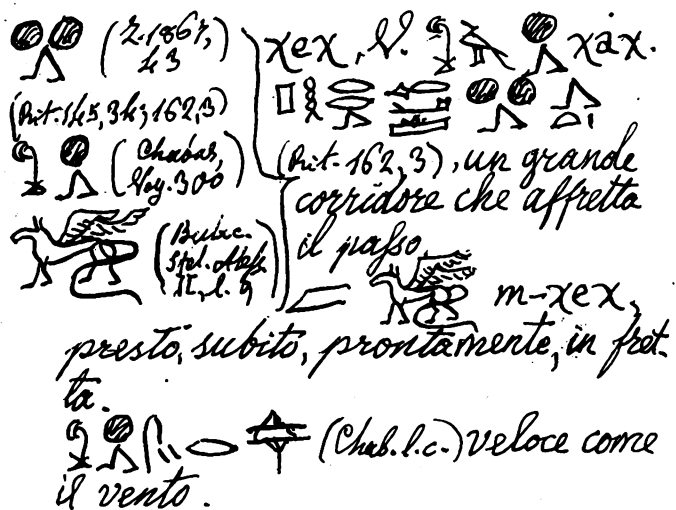 (Z. 1867,
43)
(Rit. 145, 34; 162, 3)
(Chabas,
Voy. 300)
Stel.
II, l. 9)
χeχ, V. χaχ.
(Rit. 162, 3), un grande
corridore che affretta
il passo
m-χeχ,
presto, subito, prontamente, in fret-
ta.
(Chab. l. c.) veloce come
il vento.